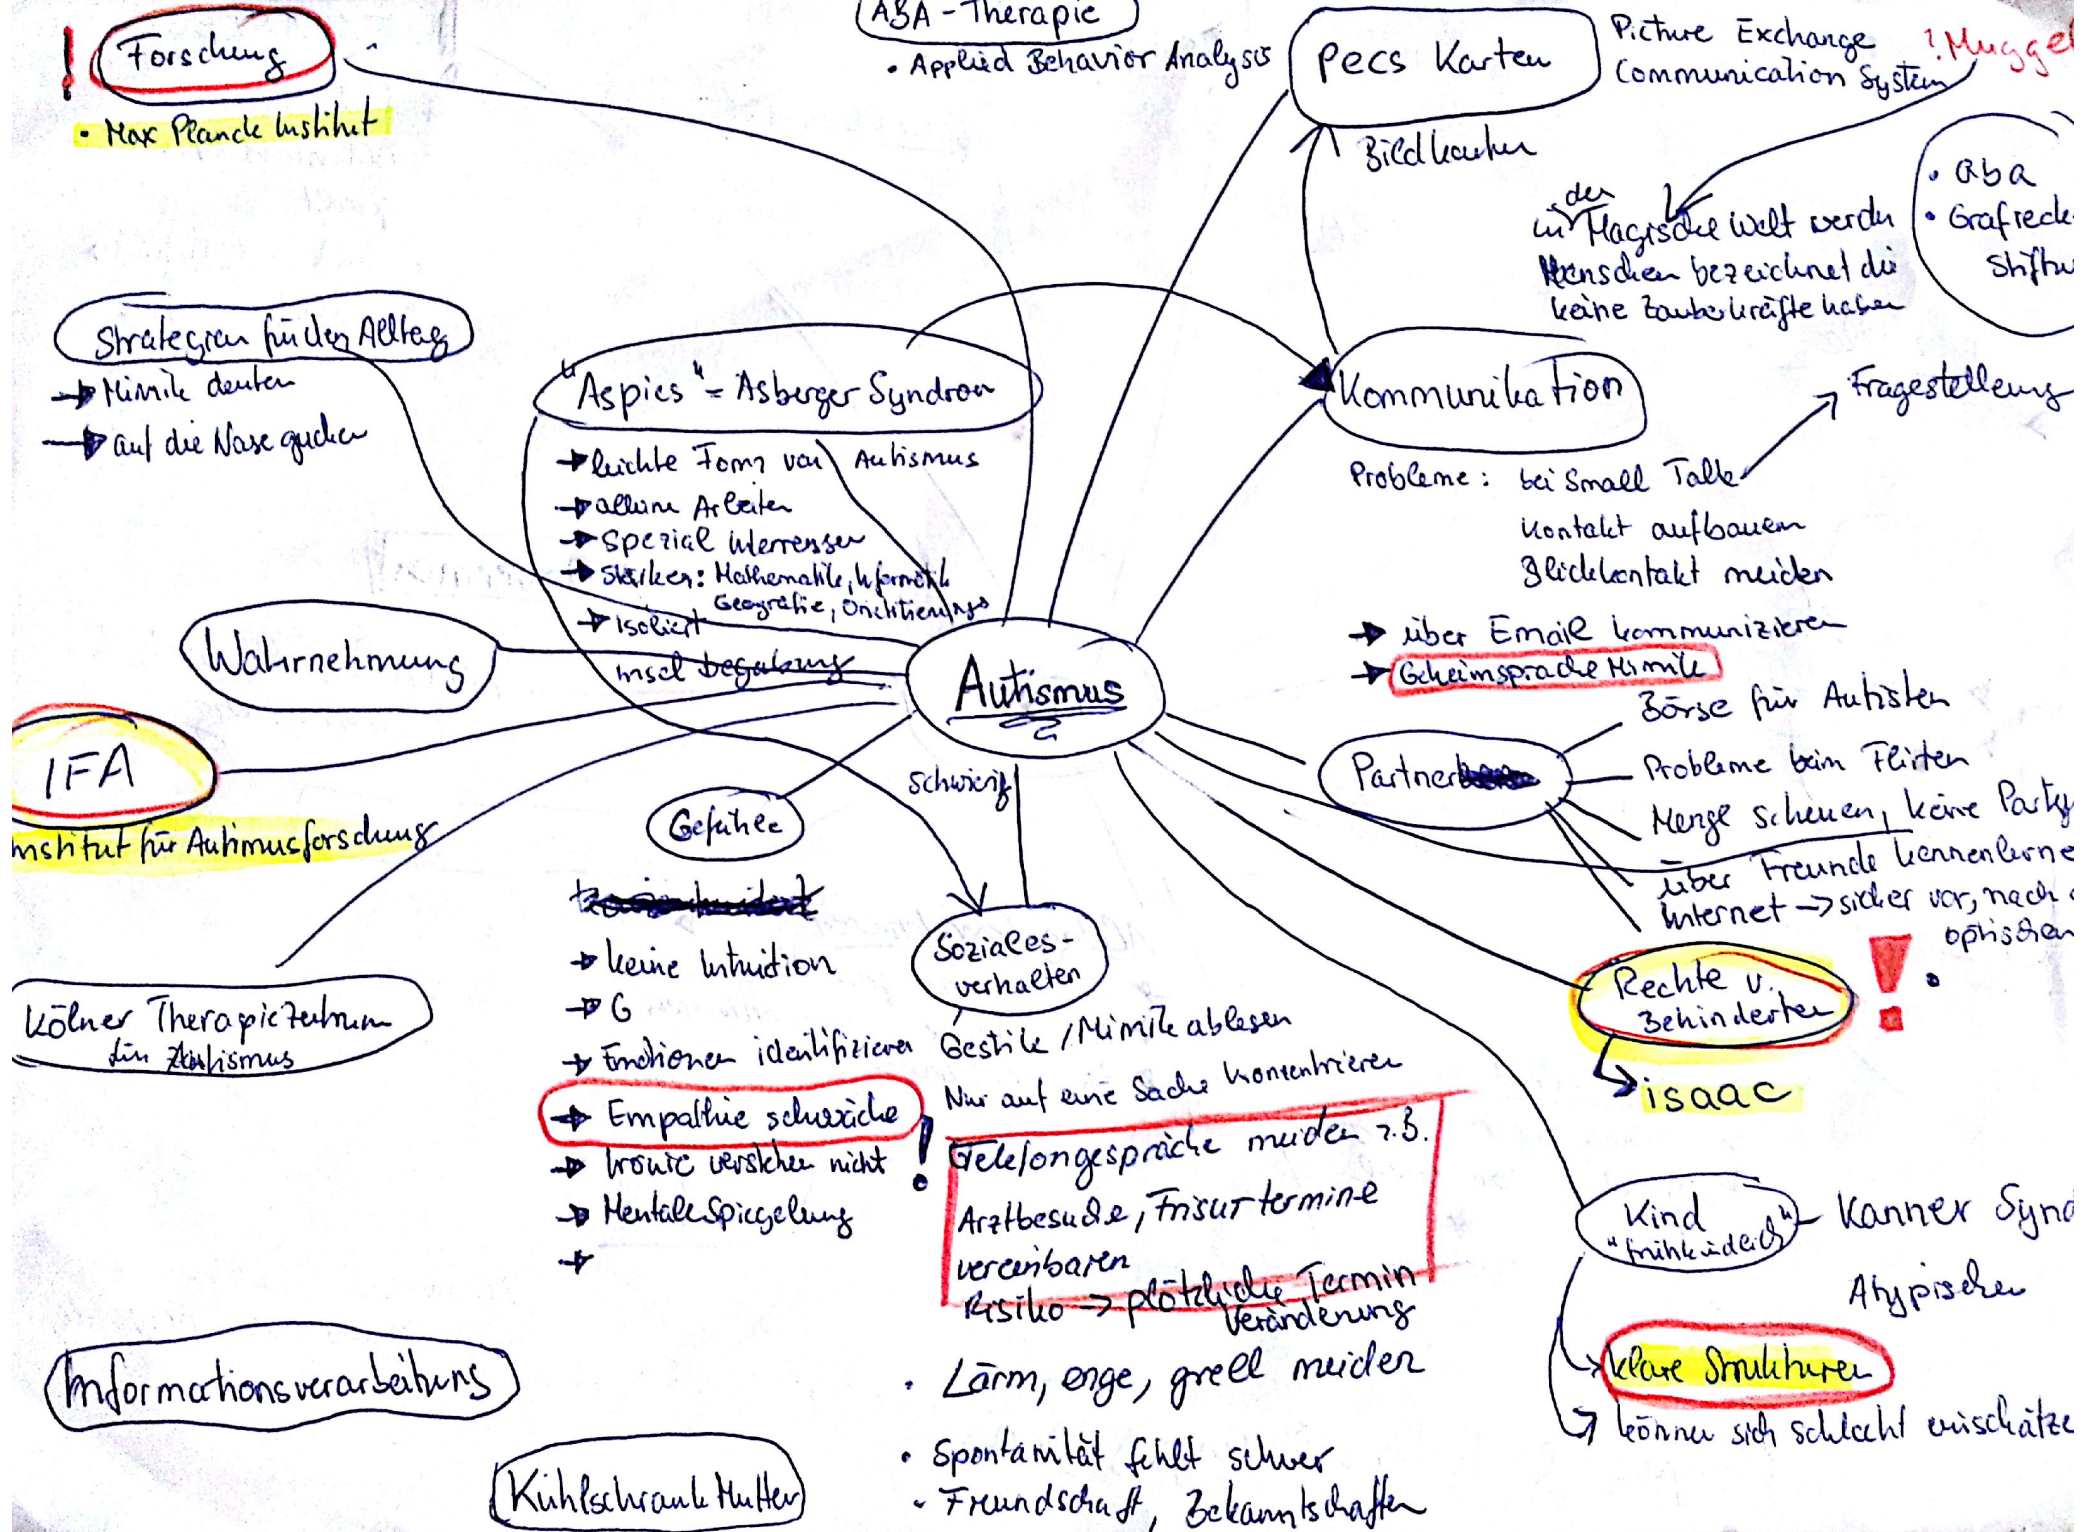 ABA - Therapie
• Applied Behavior Analysis
! Forschung
• Max Planck Institut
Pecs Karten
Bildkarten
Picture Exchange
Communication System
? Muggel
in der Magische Welt werden
Menschen bezeichnet die
keine Zauberkräfte haben
• aba
• Grafrecke
Stiftu
Strategien für den Alltag
→ Mimik deuten
→ auf die Nase gucken
"Aspies" = Asberger Syndrom
→ leichte Form von Autismus
→ alleine Arbeiten
→ Spezial Interressen
→ Stärken: Mathematik, Informatik
Geografie, Orientierungs
→ isoliert
Insel begabung
Kommunikation
Fragestellung
Probleme: bei Small Talk
Kontakt aufbauen
Blickkontakt meiden
→ über Email kommunizieren
→ Geheimsprache Mimik
Wahrnehmung
Autismus
IFA
Institut für Autimusforschung
Kölner Therapiezentrum
für Autismus
Partner
Börse für Autisten
Probleme beim Flirten
Menge scheuen, keine Party
über Freunde kennenlerne
Internet → sicher vor, nach
optischen
Gefühle
→ keine Intuition
→ G
→ Emotionen identifizieren
→ Empathie schwäche
→ Ironie verstehen nicht
→ Mentale Spiegelung
→
schwierig
Soziales-
verhalten
Gestik / Mimik ablesen
Nur auf eine Sache konzentrieren
! Telefongespräche meiden z.B.
Arztbesuche, Frisurtermine
vereinbaren
Risiko → plötzliche Termin
Veränderung
• Lärm, enge, grell meiden
• Spontanität fehlt schwer
- Freundschaft, Bekanntschaften
Rechte v. !
Behinderten
isaac
Kind
"frühkindlich"
Kanner Synd
Atypischen
klare Strukturen
können sich schlecht einschätze
Informationsverarbeitung
Kühlschrank Mutter